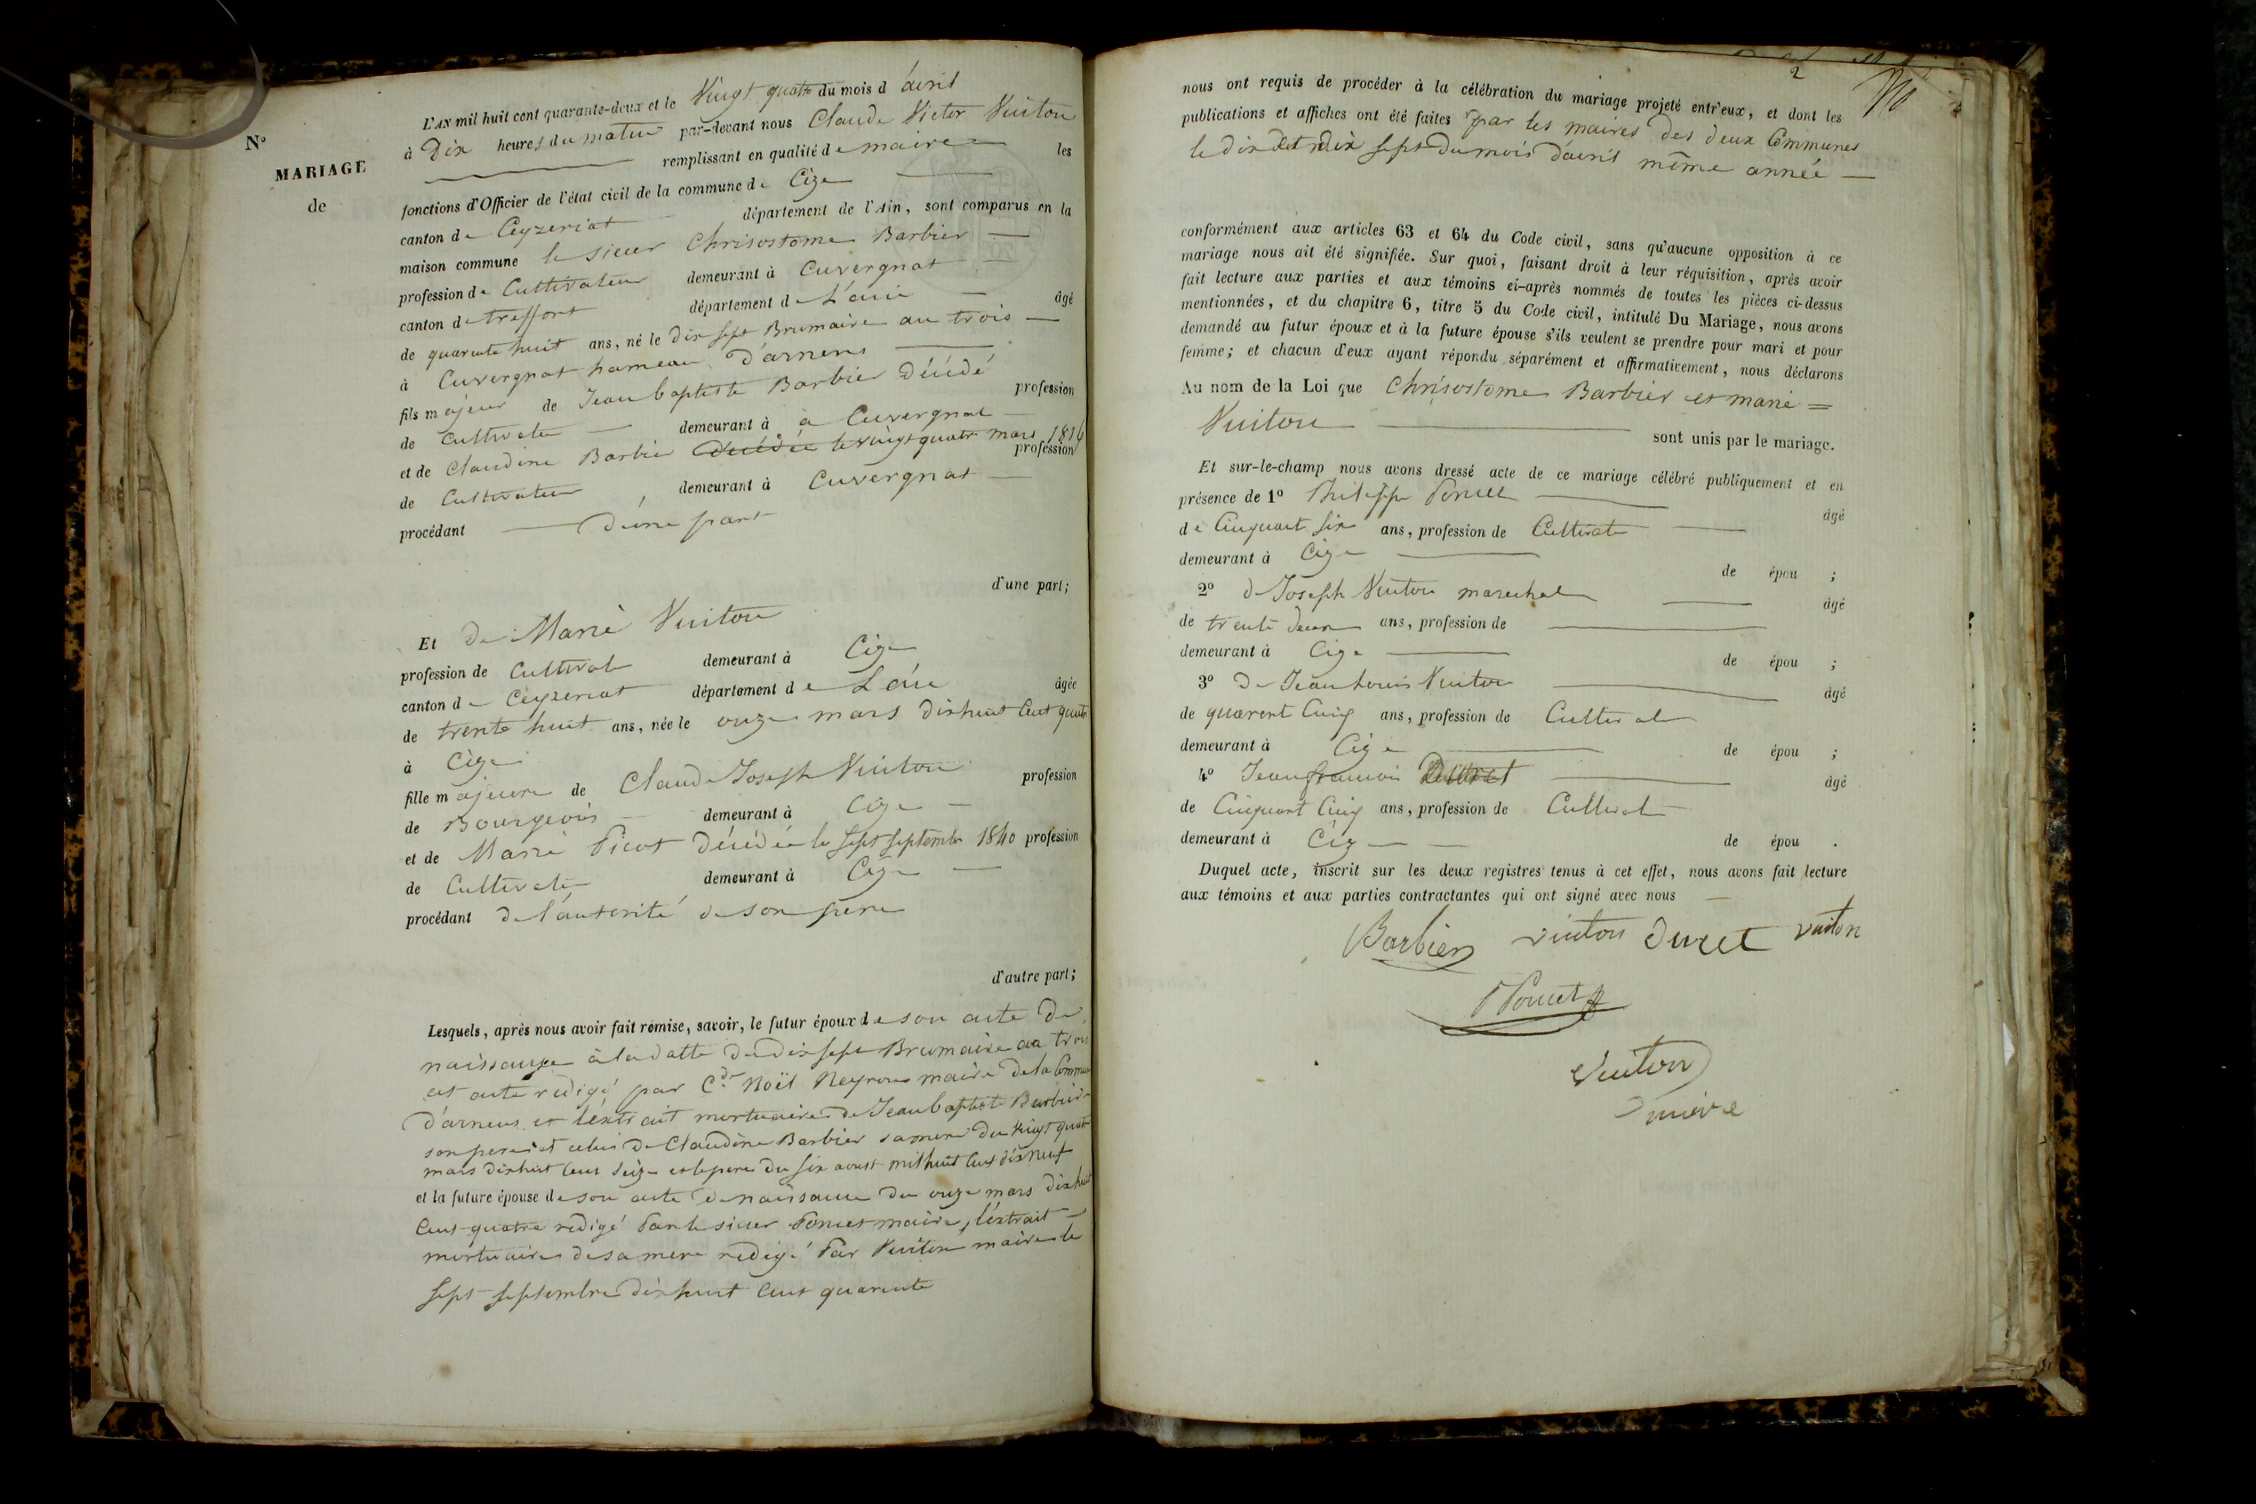 N°
MARIAGE
de
L'AN mil huit cent quarante-deux et le Vingt quatre du mois d'avril
à Dix heures du matin par-devant nous Claude Victor Vuiton
remplissant en qualité de maire les
fonctions d'Officier de l'état civil de la commune de Cize
canton de Ceyzeriat département de l'Ain, sont comparus en la
maison commune le sieur Chrisostome Barbier
profession de Cultivateur demeurant à Cuvergnat
canton de treffort département de L'ain âgé
de quarante huit ans, né le dix sept Brumaire an trois
à Cuvergnat hameau d'arnens
fils majeur de Jean baptiste Barbier Décédé profession
de Cultivate demeurant à à Cuvergnat
et de Claudine Barbier Décédée le vingt quatre mars 1816 profession
de Cultivateur demeurant à Cuvergnat
procédant d'une part
d'une part;
Et de Marie Vuiton
profession de Cultivat demeurant à Cize
canton de Ceyzeriat département de L'ain âgée
de trente huit ans, née le onze mars dixhuit Cent quatre
à Cize
fille majeure de Claude Joseph Vuiton profession
de Bourgeois demeurant à Cize
et de Marie Picot Décédée le Sept Septembre 1840 profession
de Cultivate demeurant à Cize
procédant de l'autorité de son pere
d'autre part;
Lesquels, après nous avoir fait remise, savoir, le futur époux de son acte de
naissance à la datte du dix sept Brumaire an trois
cet acte redigé par C.de Noël Neyron maire de la Commune
d'arnens et l'extrait mortuaire de Jean baptiste Barbier
son pere et celui de Claudine Barbier sa mere du Vingt quatre
mars dixhuit Cent Seize et le pere du six aoust mil huit Cent dix neuf
et la future épouse de son acte de naissance du onze mars dix huit
Cent quatre redigé Par le sieur Poncet maire, l'extrait
mortuaire de sa mere redigé Par Vuiton maire le
Sept Septembre dix huit Cent quarante
2
nous ont requis de procéder à la célébration du mariage projeté entr'eux, et dont les
publications et affiches ont été faites par les maires des deux Communes
le dix et dix sept du mois d'avril même année
conformément aux articles 63 et 64 du Code civil, sans qu'aucune opposition à ce
mariage nous ait été signifiée. Sur quoi, faisant droit à leur réquisition, après avoir
fait lecture aux parties et aux témoins ci-après nommés de toutes les pièces ci-dessus
mentionnées, et du chapitre 6, titre 5 du Code civil, intitulé Du Mariage, nous avons
demandé au futur époux et à la future épouse s'ils veulent se prendre pour mari et pour
femme; et chacun d'eux ayant répondu séparément et affirmativement, nous déclarons
Au nom de la Loi que Chrisostome Barbier et marie =
Vuiton sont unis par le mariage.
Et sur-le-champ nous avons dressé acte de ce mariage célébré publiquement et en
présence de 1° Philippe Poncet âgé
de Cinquant six ans, profession de Cultivat
demeurant à Cize de épou ;
2° de Joseph Vuiton marechal âgé
de trente deux ans, profession de
demeurant à Cize de épou ;
3° de Jean Louis Vuiton âgé
de quarent Cinq ans, profession de Cultivat
demeurant à Cize de épou ;
4° Jean francois Duret âgé
de Cinquant Cinq ans, profession de Cultivat
demeurant à Cize de épou .
Duquel acte, inscrit sur les deux registres tenus à cet effet, nous avons fait lecture
aux témoins et aux parties contractantes qui ont signé avec nous
Barbier vuiton Duret vuiton
P Poncet
Vuiton